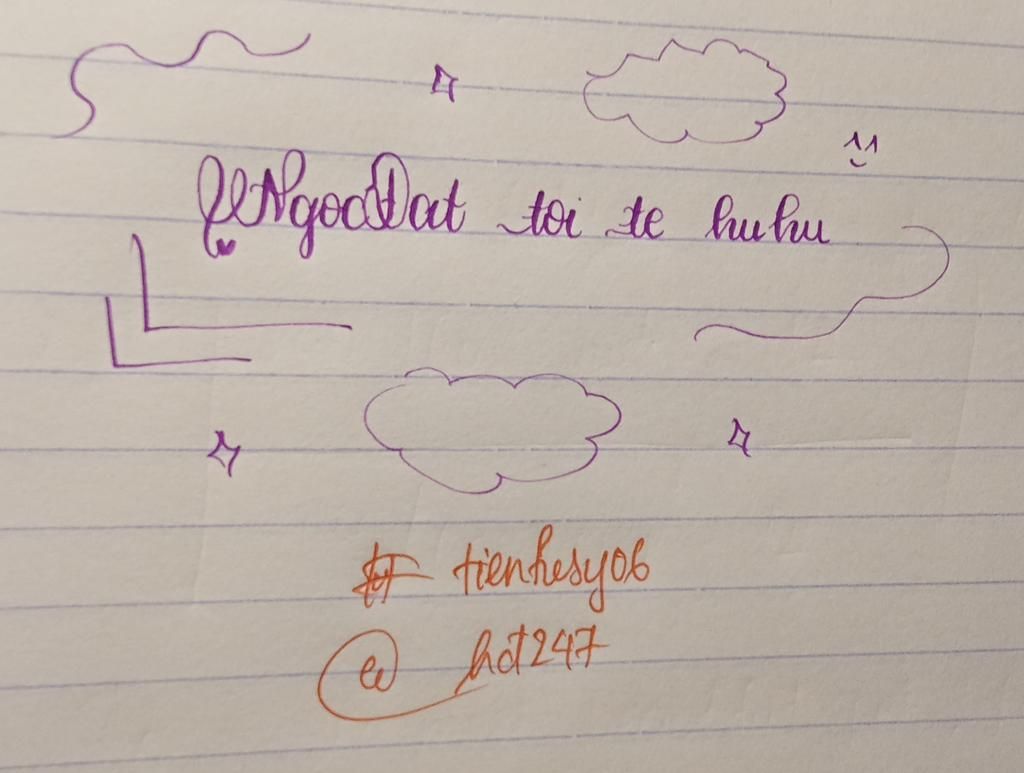 LeNgocDat toi te huhu
# tienhesy06
@ hdt247